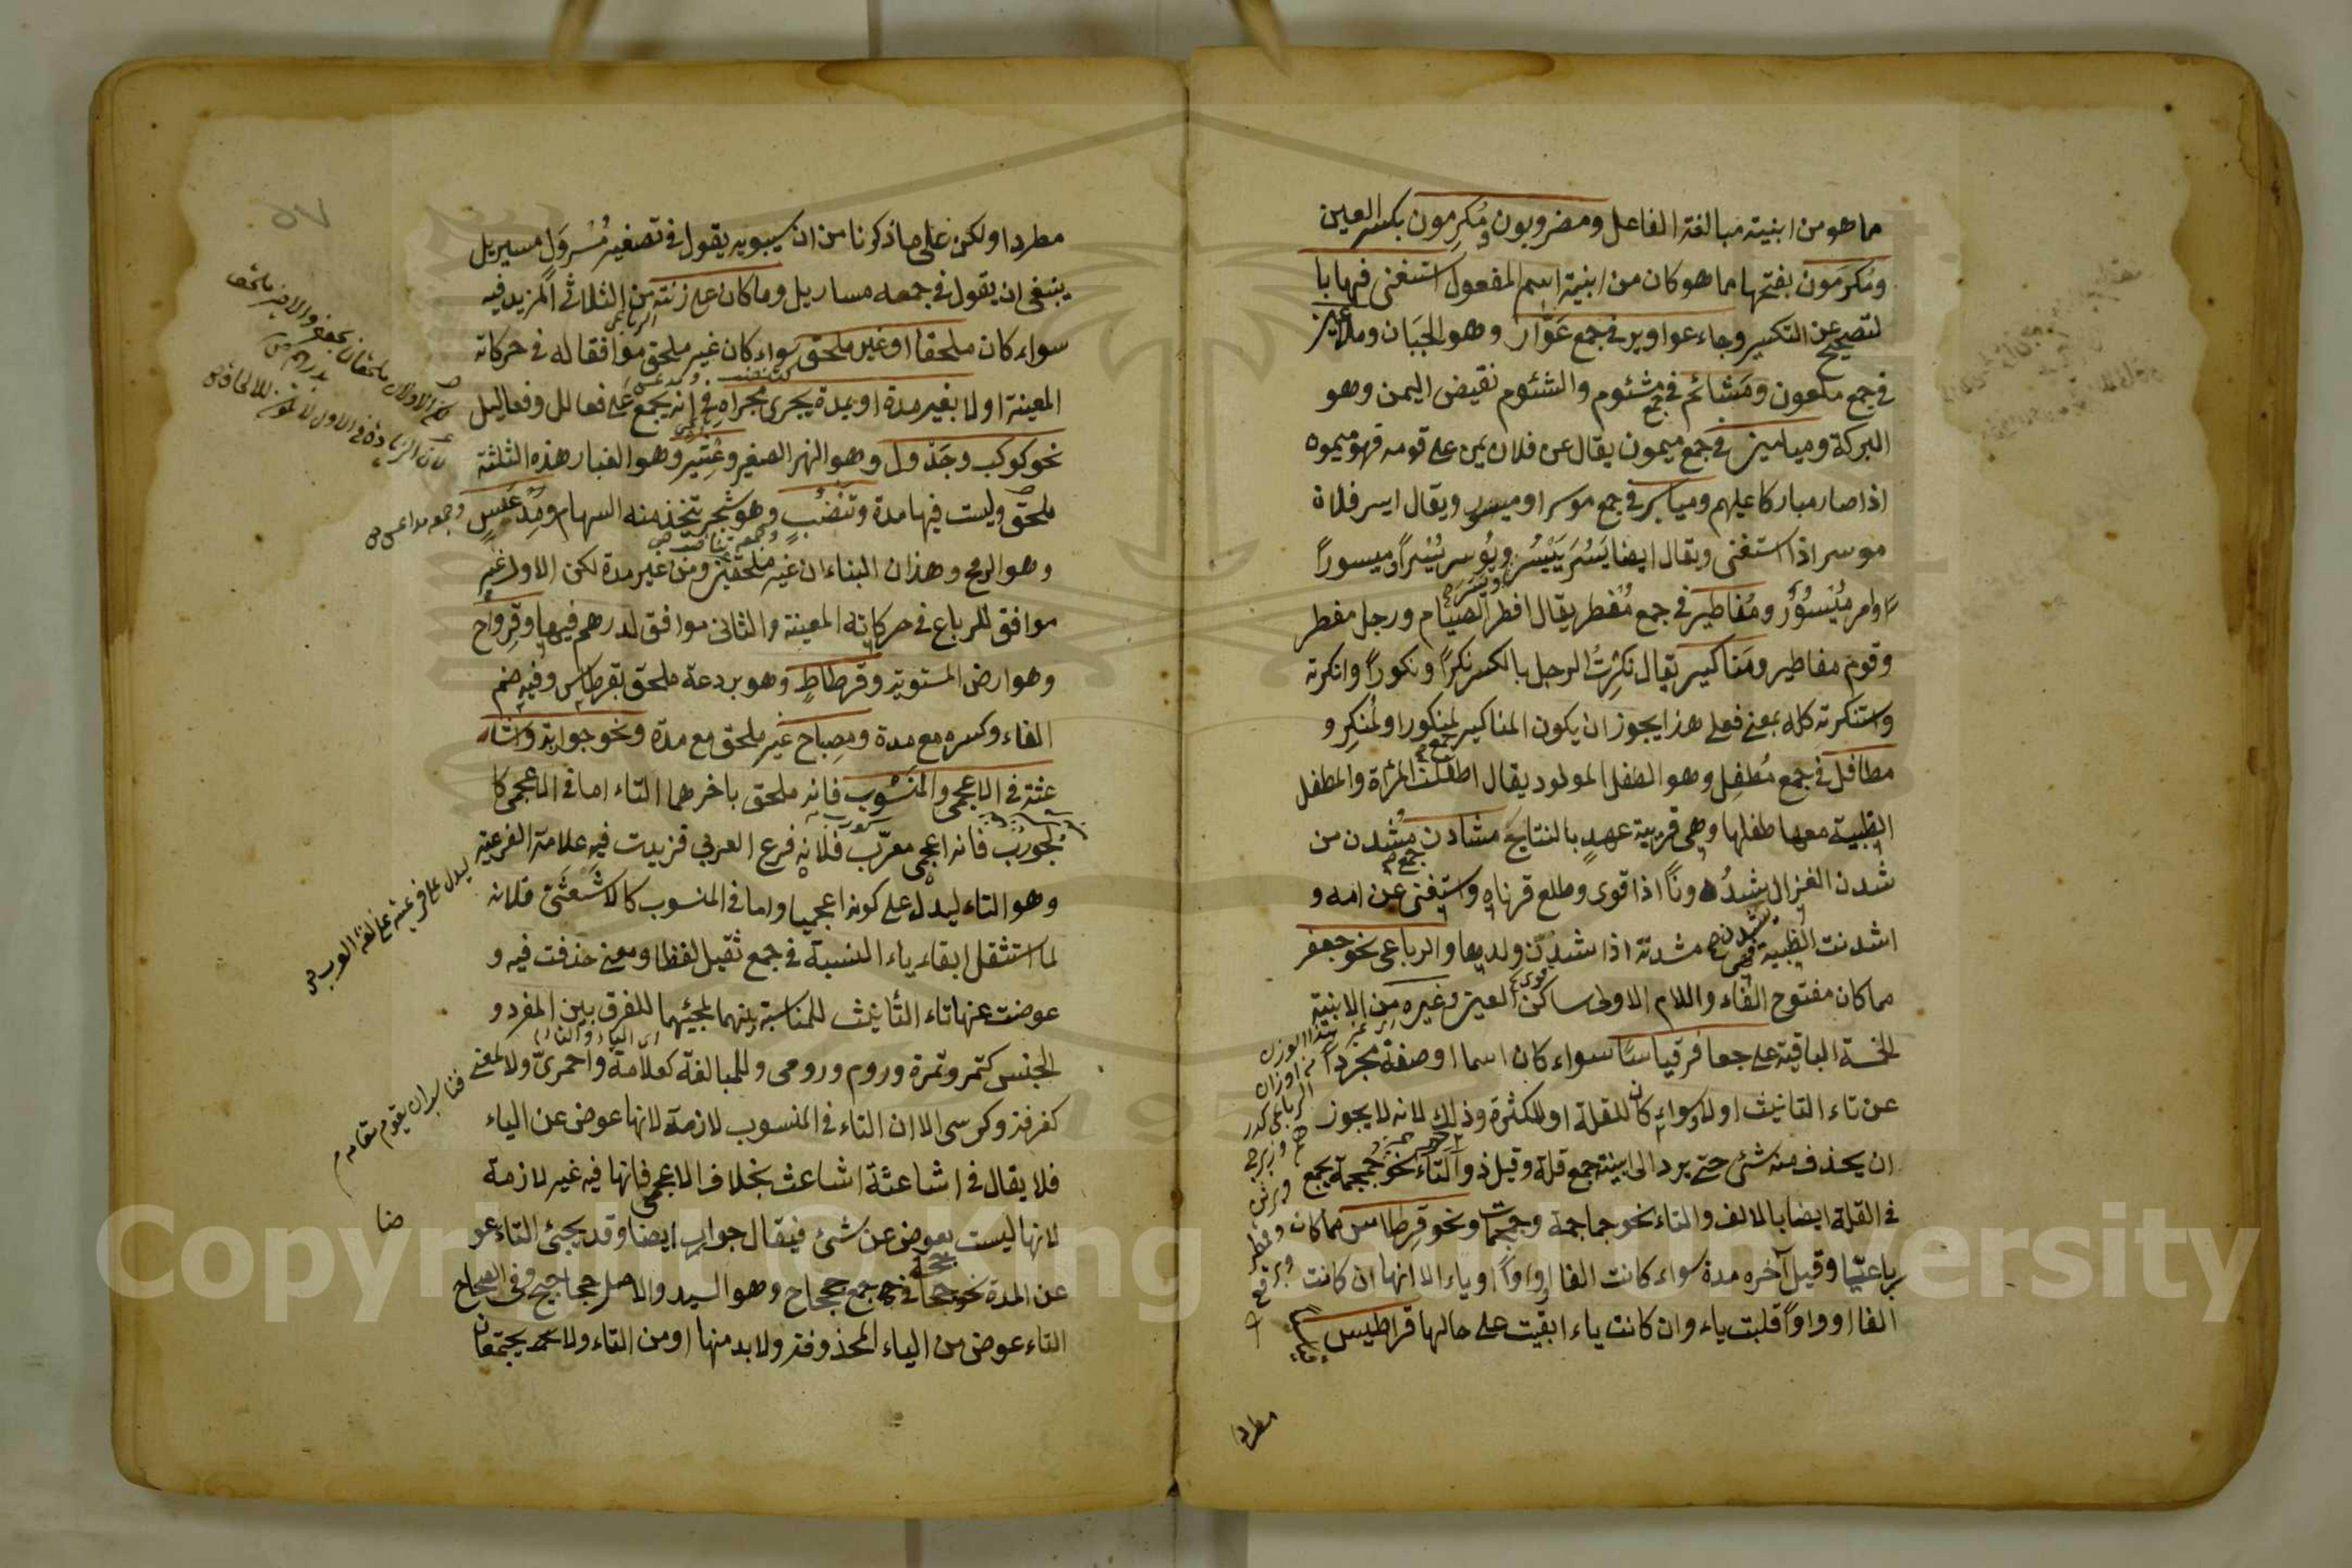 مما هو من ابنيته مبالغة الفاعل ومضروبون ومُكرِمون بكسر العين
ومُكرَمون بفتحها مما هو كان من ابنية اسم المفعول استغنى فيها با
لتصحيح عن التكسير وجاء عواوير في جمع عَوّار وهو الجَبَان وملاعين
في جمع ملعون ومَشائم في جمع مشئوم والشئوم نقيض اليمن وهو
البركة وميامين في جمع ميمون يقال عن فلان يمن على قومه فهو ميمون
اذا صار مباركا عليهم ومياسر في جمع موسر او ميسر ويقال ايسر فلان
موسر اذا استغنى ويقال ايضا يَسُرَ يَيْسُر ويُوسر يُسْراً وميسوراً
ومفاطير في جمع مُفطر يقال افطر الصيام ورجل مفطر
وقوم مفاطير ومَناكير يقال نكِرتُ الرجل بالكسر نُكراً ونكوراً وانكرته
واستنكرته كله بمعنى فعلى هذا يجوز ان يكون المناكير لمنكور او لمُنكِر و
مطافل في جمع مُطفِل وهو الطفل المولود يقال اطفلت المرأة والمطفل
الظبية معها طفلها وهي قريبة عهدٍ بالنتايج مشادن جمع مُشدن من
شدن الغزال يشدُن ونًا اذا قوى وطلع قرناه واستغنى عن امه و
اشدنت الظبية فهي مشدنة اذا شدن ولدها والرباعى نحو جعفر
مما كان مفتوح الفاء واللام الاولى ساكن العين وغيره من الابنية
الخمسة الباقية على جعافر قياسًا سواء كان اسما او صفة مجردا
عن تاء التانيث اولا وسواء كان للقلة او للكثرة وذلك لانه لا يجوز
ان يحذف منه شئ حتى يرد الى ابينة جمع قلة وقيل ذو التاء نحو جمجمة يجمع
في القلة ايضا بالالف والتاء نحو جماجمة وجمجمات ونحو قرطاس مما كان
رباعيًا وقيل آخره مدة سواء كانت الفا او واواً او ياء الا انها ان كانت
الفا او واواً قلبت ياء وان كانت ياء ابقيت على حالها قراطيس
مطردا
مطردا ولكن على ما ذكرنا من ان سيبويه يقول في تصغير مُسْروَل مسيريل
ينبغي ان يقول في جمعه مساريل وما كان على زنته من الثلاثى المزيد فيه
سواء كان ملحقا او غير ملحق سواء كان غير ملحق موافقا له في حركاته
المعينة اولا بغير مدة او بمدة يجرى مجراه في انه يجمع على فعالل وفعاليل
نحو كوكب وجَدْول وهو النهر الصغير وعِثْير وهو الغبار هذه الثلثة
ملحق وليست فيها مدة وتَنْضُب وهو شجر يتخذ منه السهام ومِدْعَس
وهو الرمح وهذان البناءان غير ملحقين ومن غير مدة لكن الاول غير
موافق للرباع في حركاته المعينة والثانى موافق لدرهم فيها وقِرواح
وهو ارض المستوية وقرطاط وهو بردعة ملحق بقرطاس وفيه ضم
الفاء وكسره مع مدة ومصباح غير ملحق مع مدة ونحو جواربة واشا
عثة في الاعجمى والمنسوب فانه ملحق باخرهما التاء اما في الاعجمى كا
لجورب فانه اعجمى معرّب فلانه فرع العربي فزيدت فيه علامة الفرعية
وهو التاء ليدل على كونه اعجميا واما في المنسوب كالاشْعَثىّ فلانه
لما استثقل ابقاء ياء النسبة في جمع ثقيل لفظا ومعنى حذفت فيه و
عوضت عنها تاء التأنيث للمناسبة بينهما لمجيئهما للفرق بين المفرد و
الجنس كتمر وتمرة وروم ورومى وللمبالغة كعلامة واحمرىّ ولا لمعنى
كغرفة وكرسى الا ان التاء في المنسوب لازمة لانها عوض عن الياء
فلا يقال في اشاعثة اشاعث بخلاف الاعجمى فانها فيه غير لازمة
لانها ليست بعوض عن شئ فيقال جوارب ايضا وقد يجئ التاء عو
ضا
عن المدة نحو جحاجحة في جمع جحجاح وهو السيد والاصل جحاجيح وفي الصحاح
التاء عوض من الياء المحذوفة ولا بد منها او من التاء ولا يجتمعان